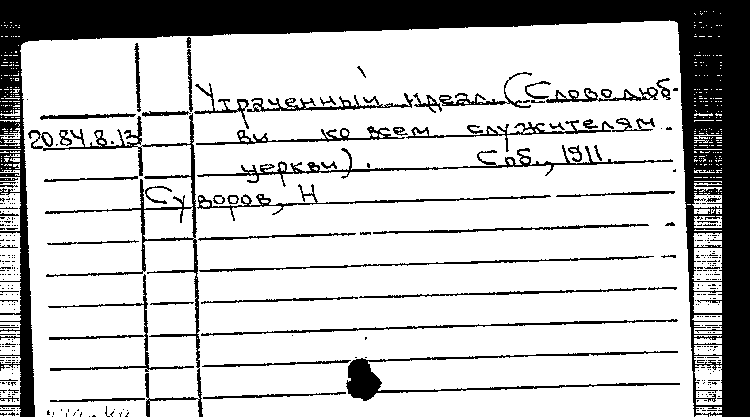 Утраченный идеал. (Слово люб-
20.84.8.13 ви ко всем служителям
церкви). Спб., 1911.
Суворов, Н